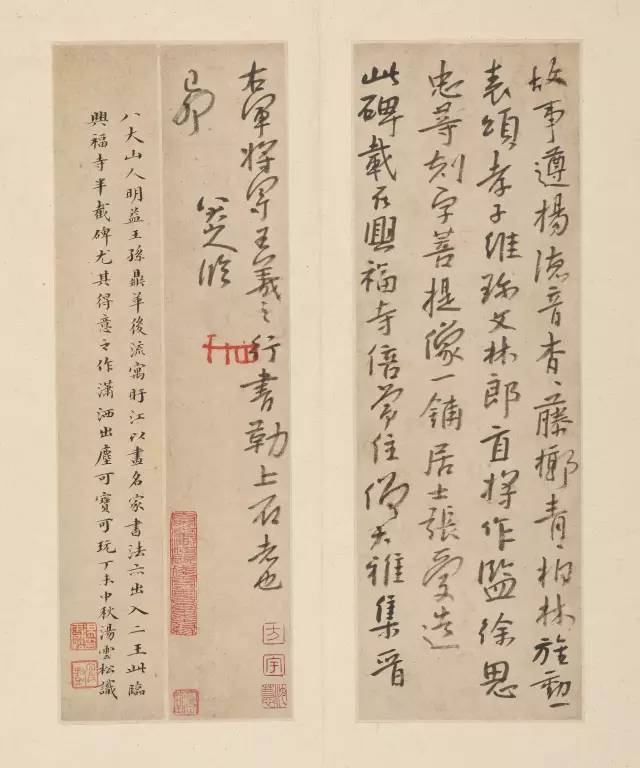 故事遵楊德音杳、藤鄉青、柏林旌勳
表頌孝子維珎文林郎直將作監徐思
忠等刻字菩提像一鋪居士張愛造
此碑載在興福寺倍常住僧大雅集晉
右軍將軍王羲之行書勒上石者也
己卯
八大山人臨
八大山人明益王孫鼎革後流寓盱江以畫名家書法亦出入二王此臨
興福寺半截碑尤其得意之作瀟洒出塵可寶可玩丁未中秋湯雲松識
方
宇